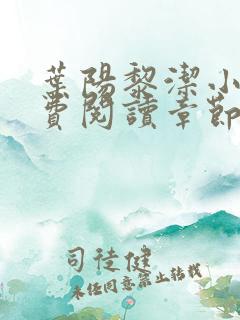 葉陽黎潔小
費閱讀章節
司徒健
未经同意禁止转载